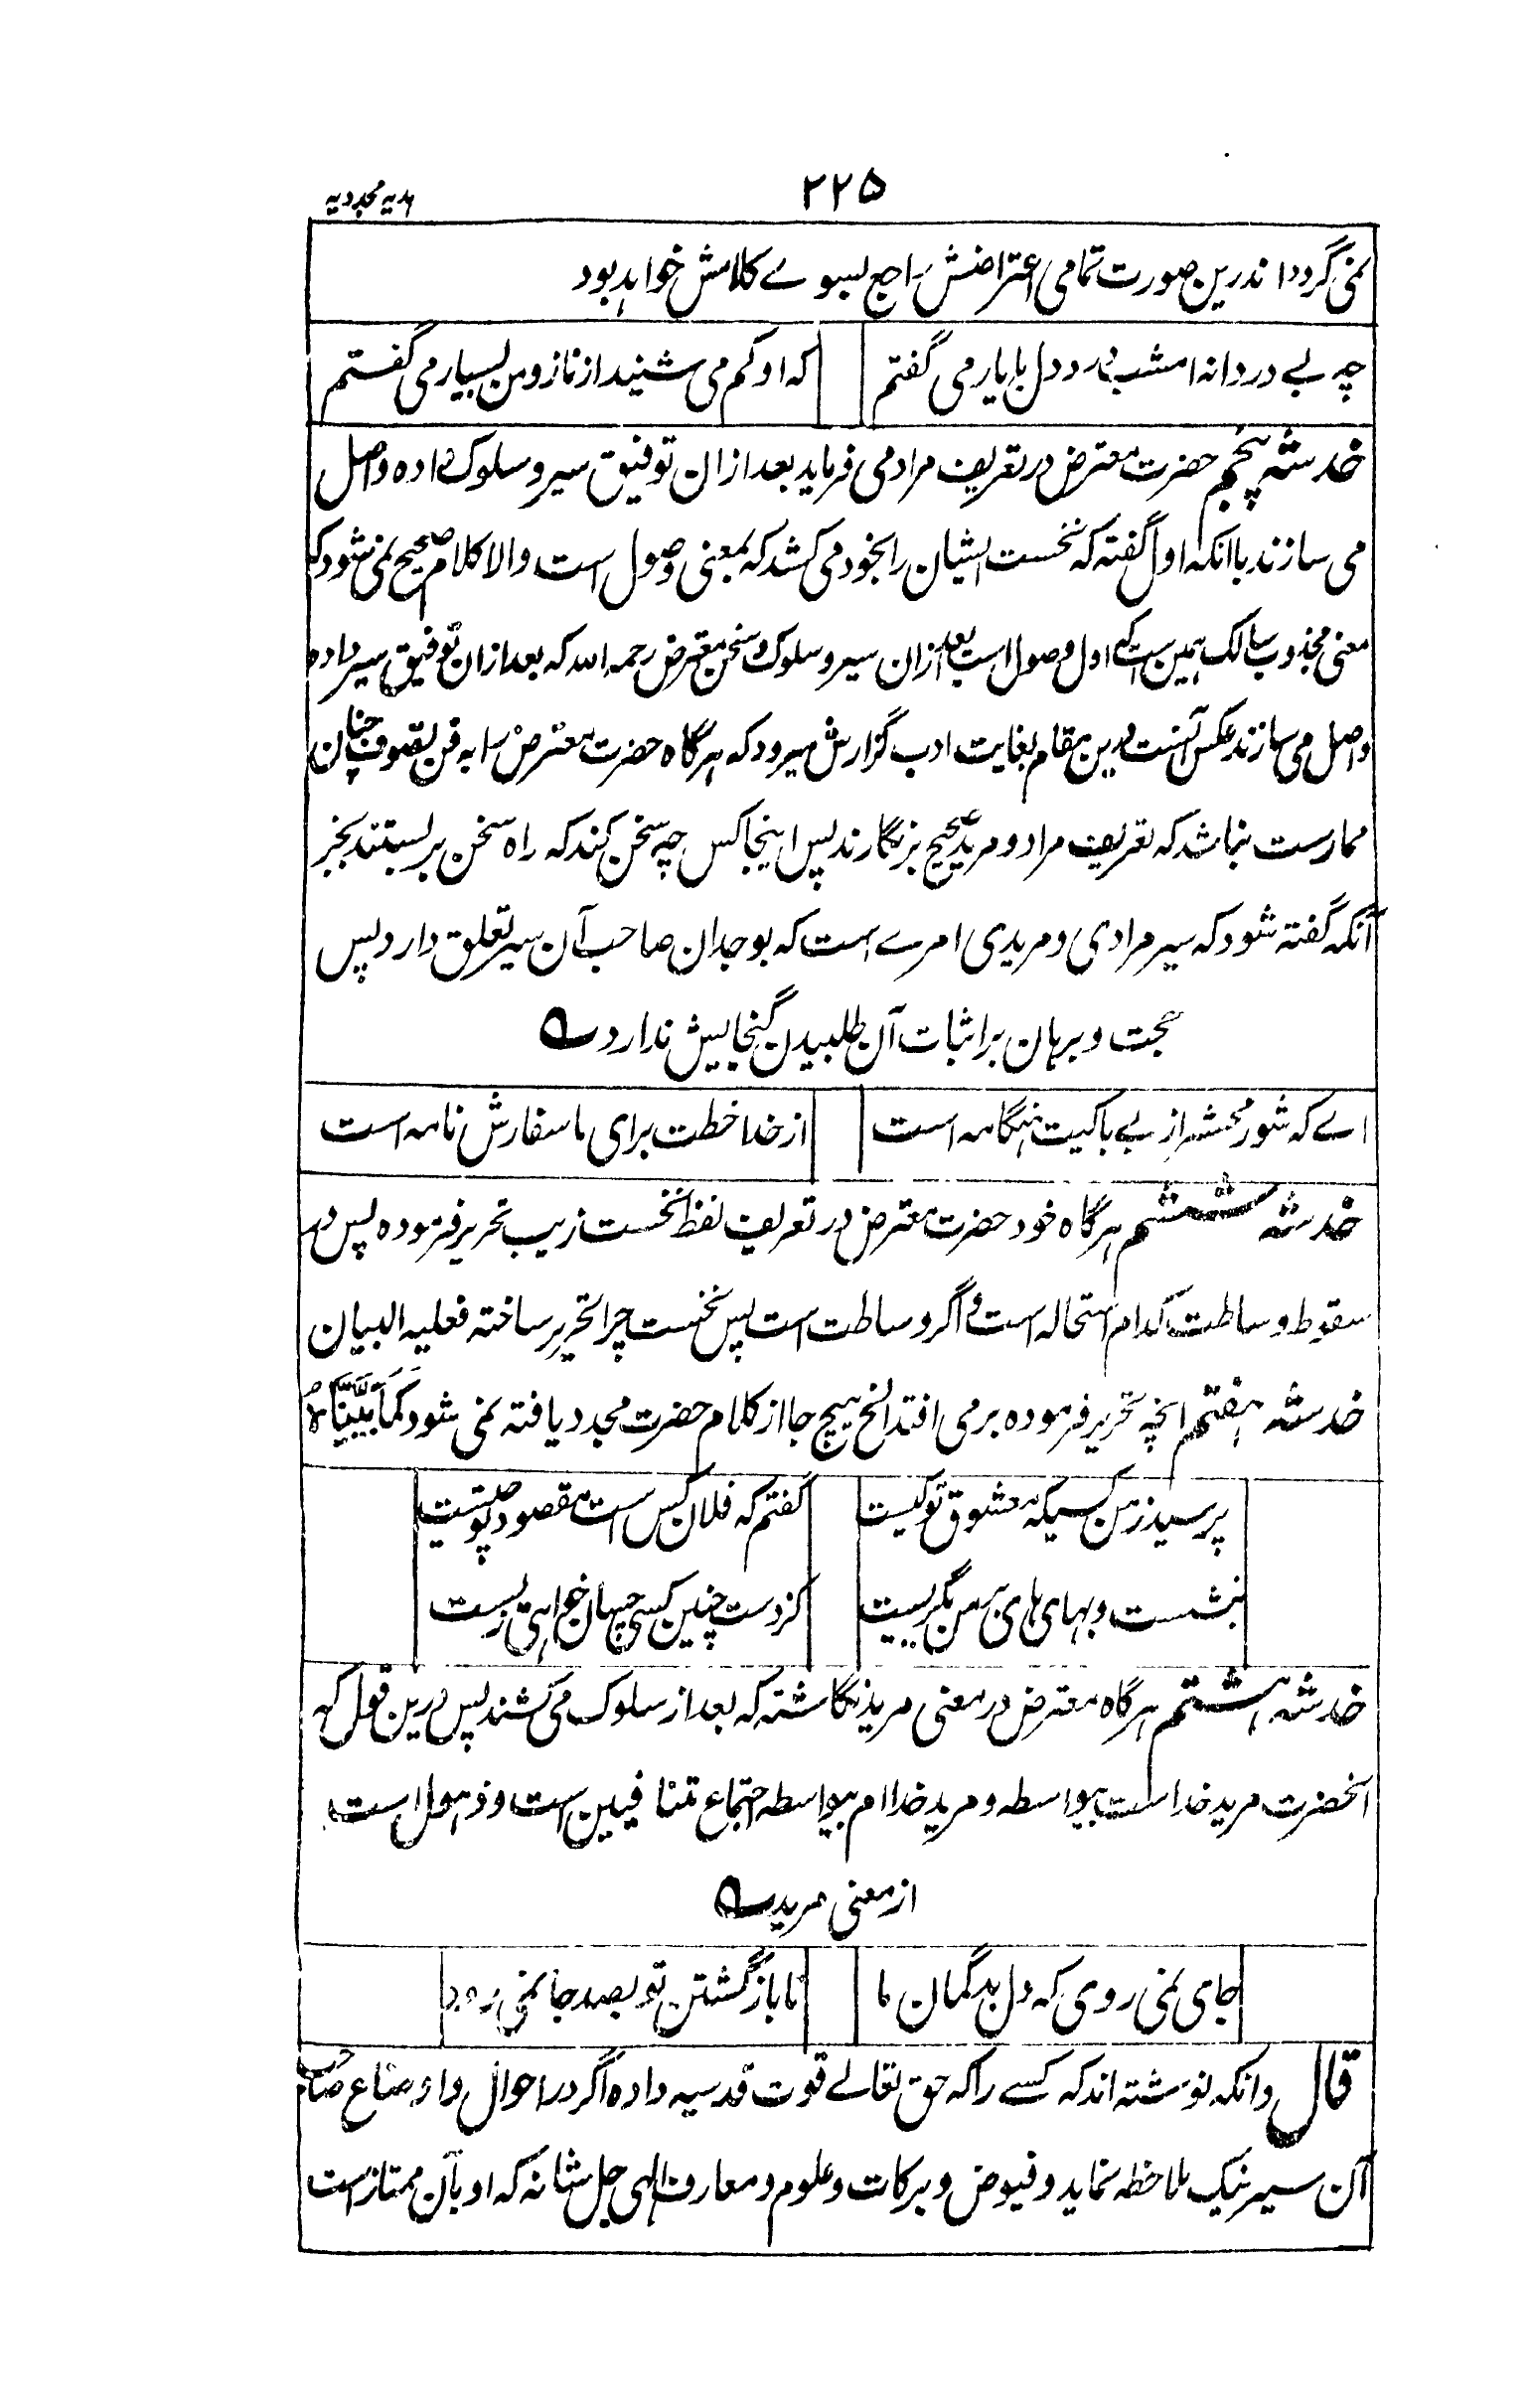 ۲۲۵
ہدیہ مجددیہ
نمی گردد اندرین صورت تمامی اعتراضش راجع بسوے کلامش خواہد بود
چہ بے دردانہ امشب درد دل با یار می گفتم
کہ او کم می شنید از ناز و من بسیار می گفتم
خدشہ پنجم حضرت معترض در تعریف مراد می فرماید بعد ازان توفیق سیر و سلوک دادہ واصل
می سازند با آنکہ اول گفتہ کہ نخست ایشان را بخود می کشد کہ بمعنی وصول است والا کلام صحیح نمی شود کہ
معنی مجذوب سالک ہمین ست کہ اول وصول است بعد ازان سیر و سلوک و سخن معترض رحمہ اللہ کہ بعد ازان توفیق سیر دادہ
واصل می سازند عکس آنست درین مقام بغایت ادب گزارش میرود کہ ہرگاہ حضرت معترض را بہ فن تصوف چنان
ممارست نباشد کہ تعریف مراد و مرید صحیح بر نگارند پس اینجا کس چہ سخن کند کہ راہ سخن بر بستند بجز
آنکہ گفتہ شود کہ سیر مرادی و مریدی امرے است کہ بوجدان صاحب آن سیر تعلق دارد پس
حجت و برہان بر اثبات آن طلبیدن گنجایش ندارد ؎
اے کہ شور محشر از بے باکیت ہنگامہ است
از خدا خطت برای ما سفارش نامہ است
خدشہ ششم ہرگاہ خود حضرت معترض در تعریف لفظ نخست زیب تحریر فرمودہ پس در
سقوط وساطت کدام استحالہ است و اگر وساطت است پس نخست چرا تحریر ساختہ فعلیہ البیان
خدشہ ہفتم انچہ تحریر فرمودہ برمی افتد الخ ہیچ جا از کلام حضرت مجدد یافتہ نمی شود کَمَا بَیَّنَّاہُ
پرسید ز من کسیکہ معشوق تو کیست
گفتم کہ فلان کس ست مقصود تو چیست
بنشست و بہای ہای بر من بگریست
کز دست چنین کسی چسان خواہی زیست
خدشہ ہشتم ہرگاہ معترض در معنی مرید نگاشتہ کہ بعد از سلوک می کشند پس درین قول کہ
آنحضرت مرید خداست بیواسطہ و مرید خدا ام بیواسطہ اجتماع متنافیین است و ذہول است
از معنی مرید ؎
جای نمی روی کہ دل بدگمان ما
تا باز گشتن تو بصد جا نمی رود
قال وانکہ نوشتہ اند کہ کسے را کہ حق تعالے قوت قدسیہ دادہ اگر در احوال و اوضاع صاحب
آن سیر نیک ملاحظہ نماید و فیوض و برکات و علوم و معارف الٰہی جل شانہ کہ او بآن ممتاز است